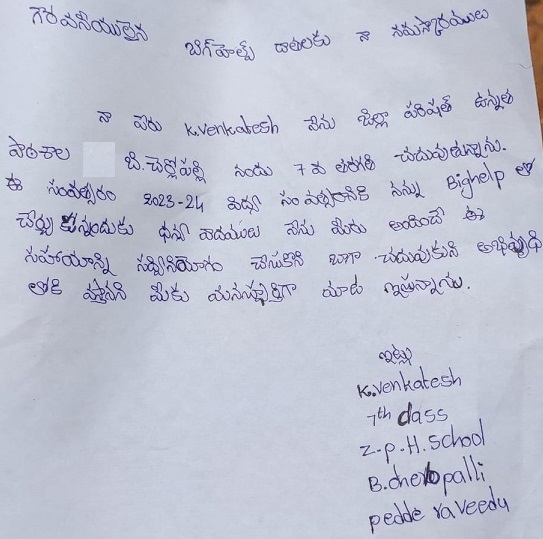 గౌరవనీయులైన
బిగ్‌హెల్ప్ దాతలకు నా నమస్కారములు
నా పేరు K.Venkatesh నేను జిల్లా పరిషత్ ఉన్నత
పాఠశాల బి.చెర్లోపల్లి నందు 7 వ తరగతి చదువుతున్నాను.
ఈ సంవత్సరం 2023-24 విద్యా సంవత్సరానికి నన్ను Bighelp లో
చేర్చుకున్నందుకు ధన్యవాదములు నేను మీరు అందించే ఈ
సహాయాన్ని సద్వినియోగం చేసుకొని బాగా చదువుకుని అభివృద్ధి
లోకి వస్తానని మీకు మనస్ఫూర్తిగా మాట ఇస్తున్నాను.
ఇట్లు
K.Venkatesh
7th class
Z.P.H. School
B.cherlopalli
pedde raveedu